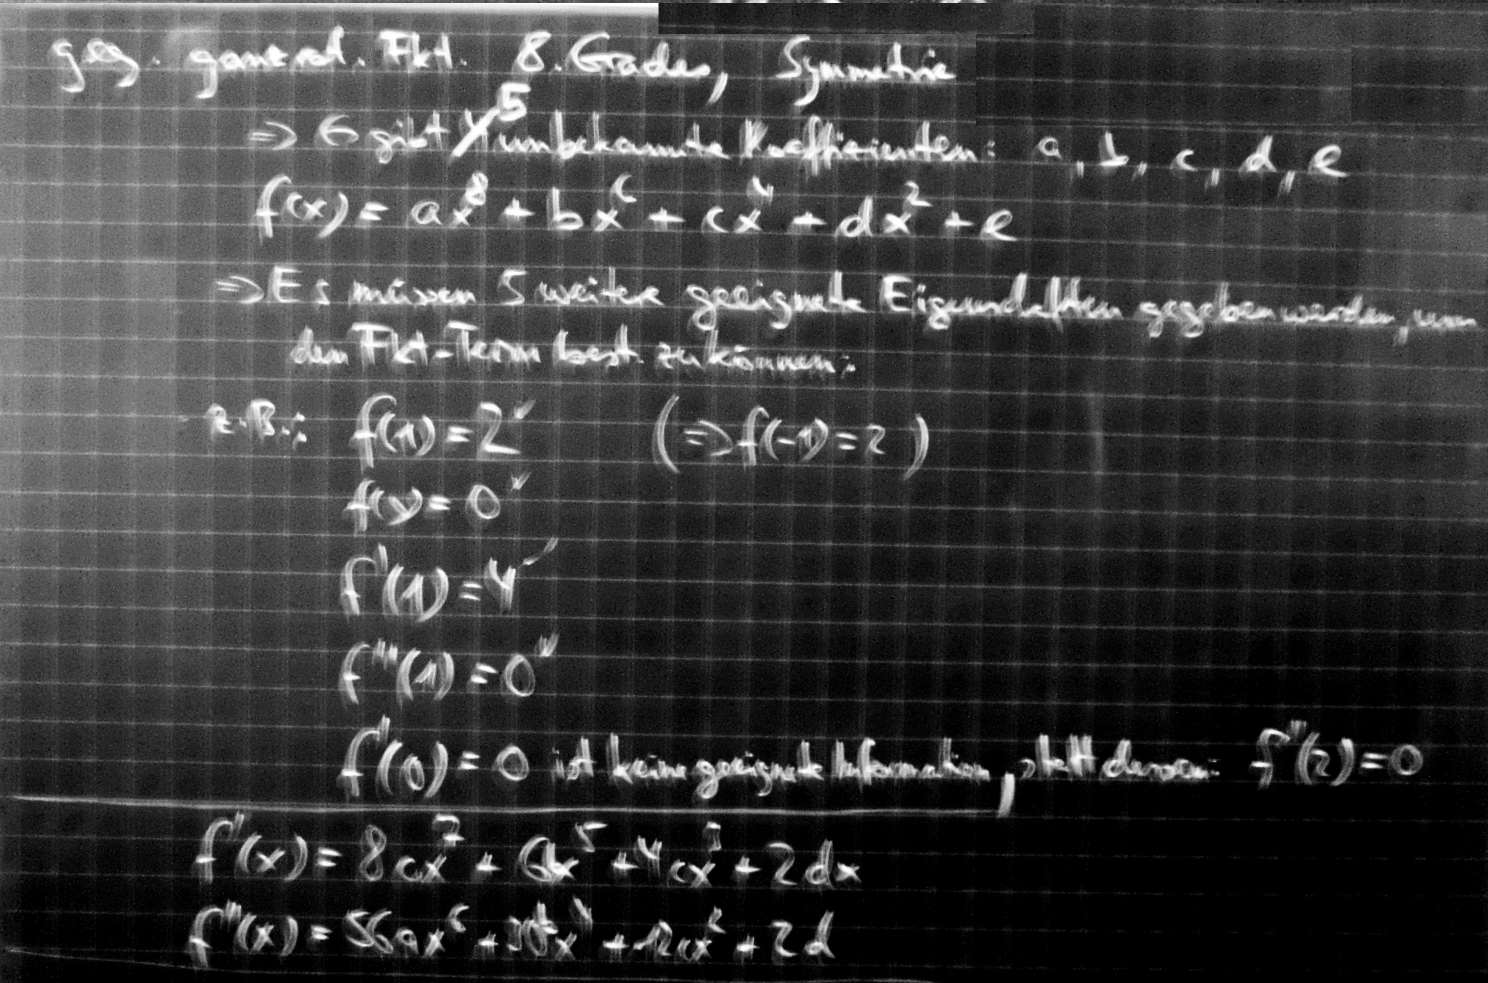 geg. ganzrat. Fkt. 8. Grades, Symmetrie
5
=> Es gibt unbekannte Koeffizienten: a, b, c, d, e
f(x) = ax⁸ + bx⁶ + cx⁴ + dx² + e
=> Es müssen 5 weitere geeignete Eigenschaften gegeben werden, um
den Fkt-Term best. zu können:
z.B.: f(1) = 2 (=> f(-1) = 2 )
f( ) = 0
f'(1) = 4
f'''(1) = 0
f'(0) = 0 ist keine geeignete Information, statt dessen: f''(2) = 0
f'(x) = 8ax⁷ + 6bx⁵ + 4cx³ + 2dx
f''(x) = 56ax⁶ + 30bx⁴ + 12cx² + 2d